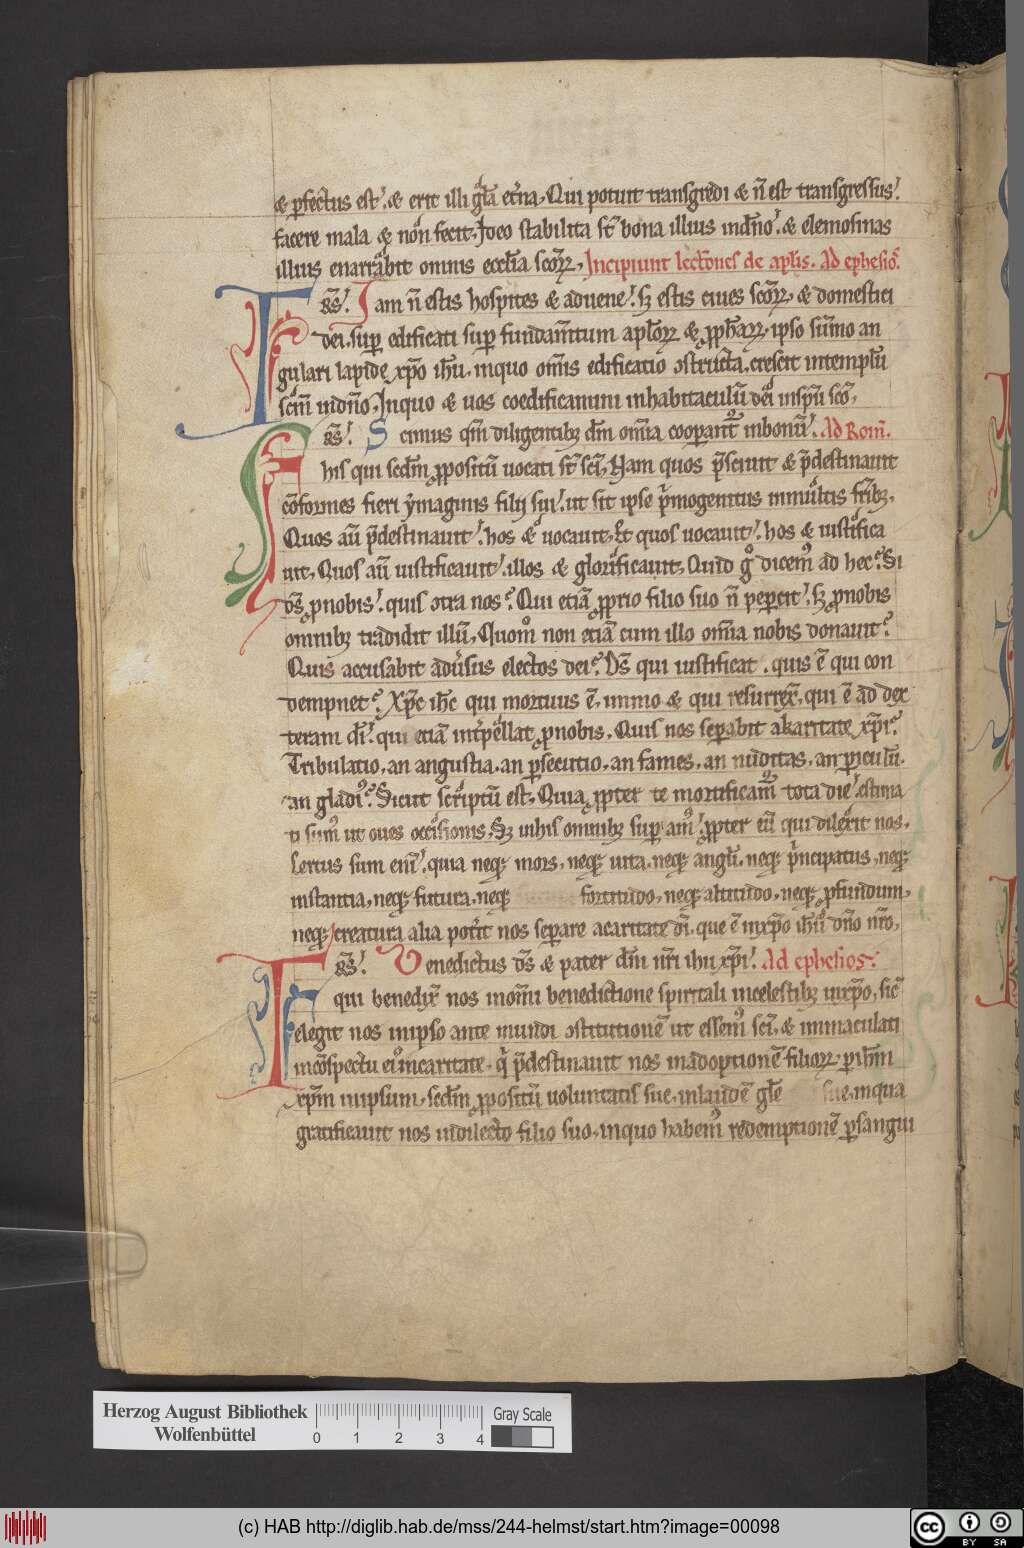 & ꝑfectus est. & erit illi gl̃a et̃na. Qui potuit transgredi & ñ est transgressus.
facere mala & non fecit. Ideo stabilita st̃ bona illius in dño. & elemosinas
illius enarrabit omnis eccl̃ia scõꝝ. Incipiunt lectiones de apl̃is. Ad ephesios.
F̃rs̃. Iam ñ estis hospites & aduene. sꝫ estis ciues scõꝝ. & domestici
dei. suꝑ edificati suꝑ fundam̃tum apl̃oꝝ & ꝓph̃aꝝ. ipso sum̃o an
gulari lapide xp̃o ih̃u. inquo om̃is edificatio ɔstructa. crescit in templũ
scm̃ in dño. Inquo & uos coedificamini in habitaculũ dei in sp̃u scõ.
F̃rs̃. Scimus qm̃ diligentibꝫ dm̃ om̃ia cooperant̃ in bonũ. Ad Rom̃.
his qui scdm̃ ꝓpositũ uocati st̃ sci. Nam quos p̃sciuit & p̃destinauit
cõformes fieri ymaginis filij sui. ut sit ipse p̃mogenitus in multis fr̃ibꝫ.
Quos aũ p̃destinauit. hos & uocauit. Et quos uocauit. hos & iustifica
uit. Quos aũ iustificauit. illos & glorificauit. Quid g̊ dicem᷒ ad hec? Si
ds̃ ꝓ nobis. quis ɔtra nos? Qui etiã ꝓprio filio suo ñ pepercit. sꝫ ꝓ nobis
omnibꝫ tradidit illũ. Quom̊ non etiã cum illo om̃ia nobis donauit?
Quis accusabit aduersus electos dei? Ds̃ qui iustificat. quis ẽ qui con
dempnet? Xp̃c ih̃c qui mortuus ẽ. immo & qui resurrex̃. qui ẽ ad dex
teram di. qui etiã int̃pellat ꝓ nobis. Quis nos seꝑabit a karitate xp̃i?
Tribulatio. an angustia. an ꝑsecutio. an fames. an nuditas. an ꝑiculũ.
an gladi᷒? Sicut scriptũ est. Quia ꝓpter te mortificam̃ tota die. estima
ti sum᷒ ut oues occisionis. Sꝫ in his omnibꝫ suꝑam᷒. ꝓpter eũ qui dilexit nos.
Certus sum eni. quia neqꝫ mors. neqꝫ uita. neqꝫ angl̃i. neqꝫ p̃ncipatus. neqꝫ
instantia. neqꝫ futura. neqꝫ fortitudo. neqꝫ altitudo. neqꝫ ꝓfundum.
neqꝫ creatura alia pot̃it nos seꝑare a caritate di. que ẽ in xp̃o ih̃u dño nr̃o.
F̃rs̃. Benedictus ds̃ & pater dni nr̃i ihu xp̃i. Ad ephesios.
qui benedix̃ nos in om̃i benedictione spiritali in celestibꝫ in xp̃o. sic̃
elegit nos in ipso ante mundi ɔstitutionẽ ut essem᷒ sci. & immaculati
in cõspectu ei᷒ in caritate. q̃ p̃destinauit nos in adoptionẽ filioꝝ. ꝑ ih̃m
xp̃m in ipsum. scdm̃ ꝓpositũ uoluntatis sue. in laudẽ gl̃e sue. in qua
gratificauit nos in dilecto filio suo. in quo habem᷒ redemptionẽ ꝑ sangui
Herzog August Bibliothek
Wolfenbüttel
0 1 2 3 4
Gray Scale
(c) HAB http://diglib.hab.de/mss/244-helmst/start.htm?image=00098
cc BY SA